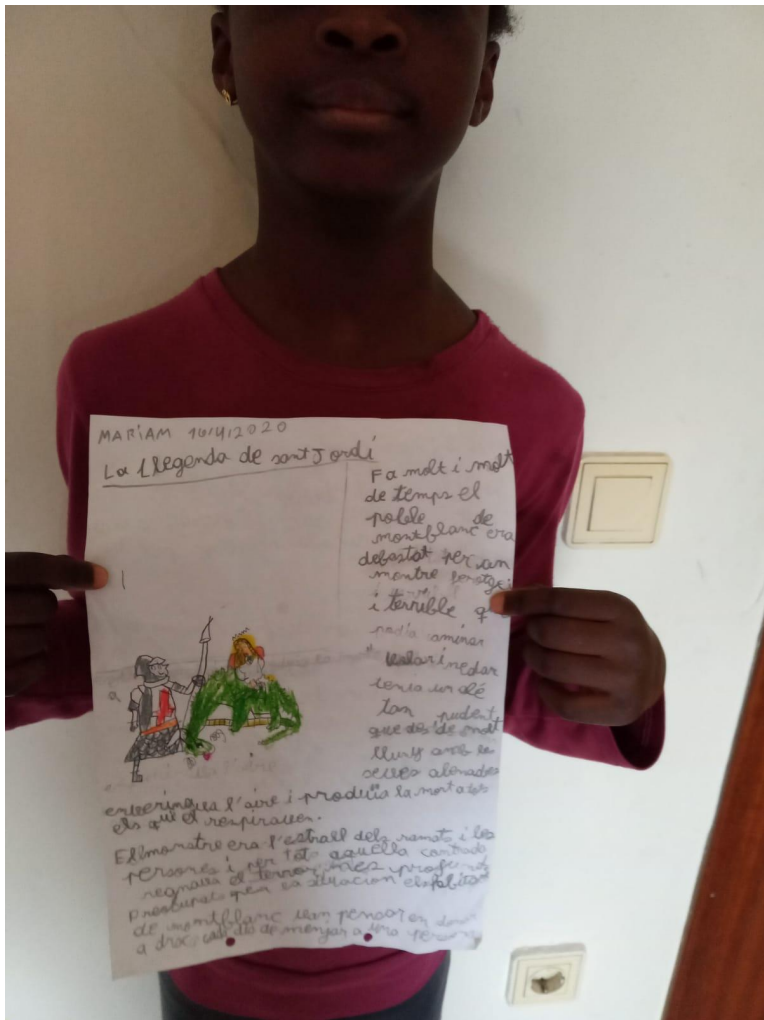 MARIAM 16/4/2020
La llegenda de sant Jordi
Fa molt i molt
de temps el
poble de
montblanc era
debastat per un
montre
i terrible q
podia caminar
volar i nedar
tenia un alé
tan pudent
que des de molt
lluny amb les
seues alenades
enverinava l'aire i produïa la mort a tots
els que el respiraven.
El monstre era l'estrall dels ramats i les
persones i per tota aquella contrada
regnava el terror mes profund
Preocupats per la situacion els habitants
de montblanc van pensar en donar
a drac cada dia de menjar a una persona